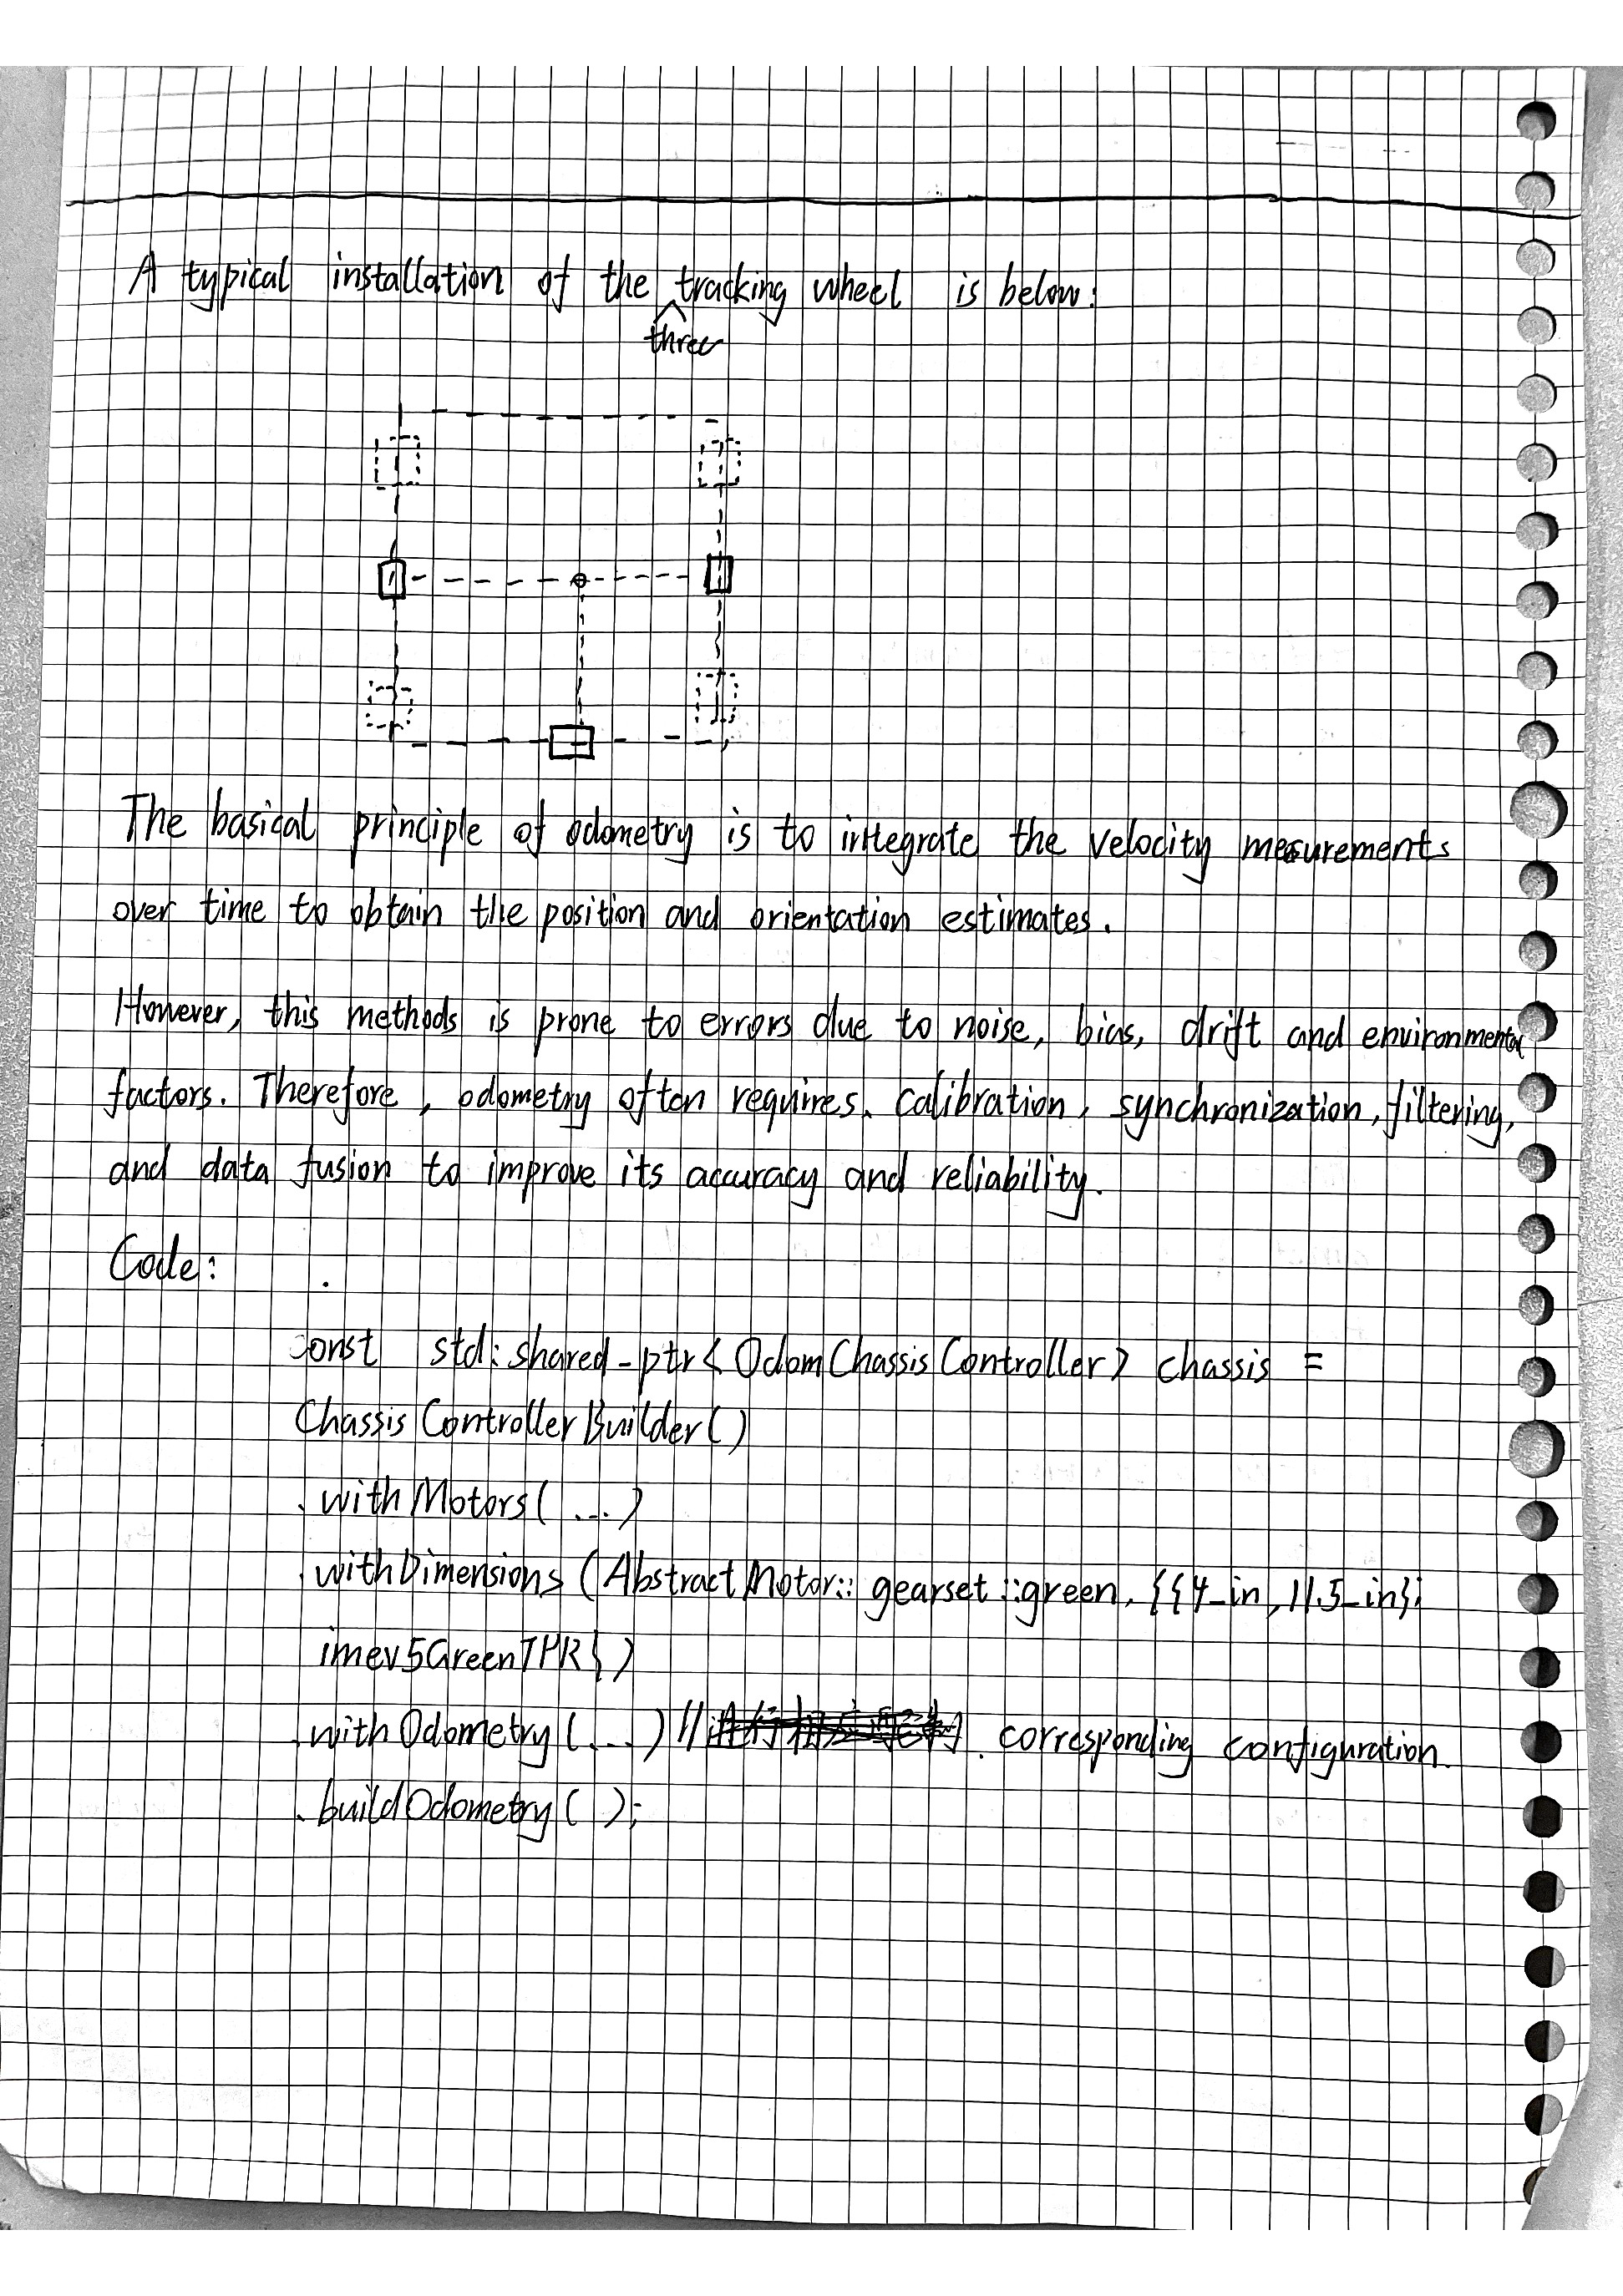 A typical installation of the three tracking wheel is below:
The basical principle of odometry is to integrate the velocity mesurements
over time to obtain the position and orientation estimates.
However, this methods is prone to errors due to noise, bias, drift and environmental
factors. Therefore, odometry often requires. calibration, synchronization, filtering,
and data fusion to improve its accuracy and reliability.
Code:
const std:shared_ptr<OdomChassisController> chassis =
ChassisControllerBuilder()
.withMotors(...)
.withDimensions(AbstractMotor::gearset::green, {{4_in, 11.5_in};
imev5GreenTPR})
.withOdometry(...) // corresponding configuration.
.buildOdometry();